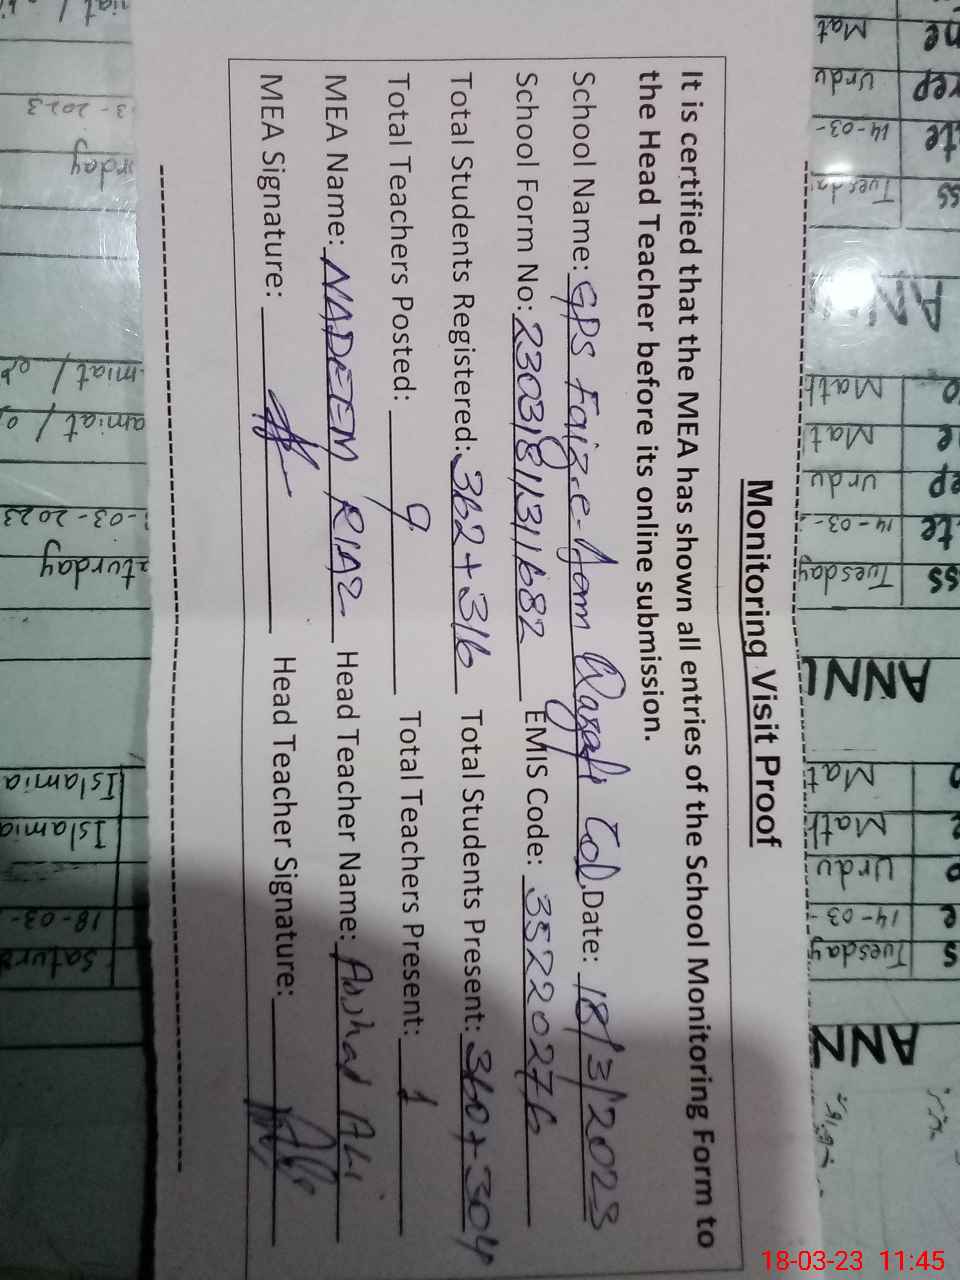 Monitoring Visit Proof
It is certified that the MEA has shown all entries of the School Monitoring Form to
the Head Teacher before its online submission.
School Name: GPS Faiz-e-Aam Col. Date: 18/3/2023
School Form No: 23031811311682 EMIS Code: 35220276
Total Students Registered: 362+316 Total Students Present: 360+304
Total Teachers Posted: 9 Total Teachers Present: 1
MEA Name: NADEEM RIAZ Head Teacher Name: Arshad Ali
MEA Signature: Head Teacher Signature:
Mat
Urdu
14-03-
Tuesda
Math
Mat
Urdu
14-03-
Tuesday
ANNU
Mat
Math
Urdu
14-03-
Tuesday
ANN
3-2023
rday
miat /
amiat /
-03-2023
aturday
Islamia
Islamia
18-03-
Satur
18-03-23 11:45